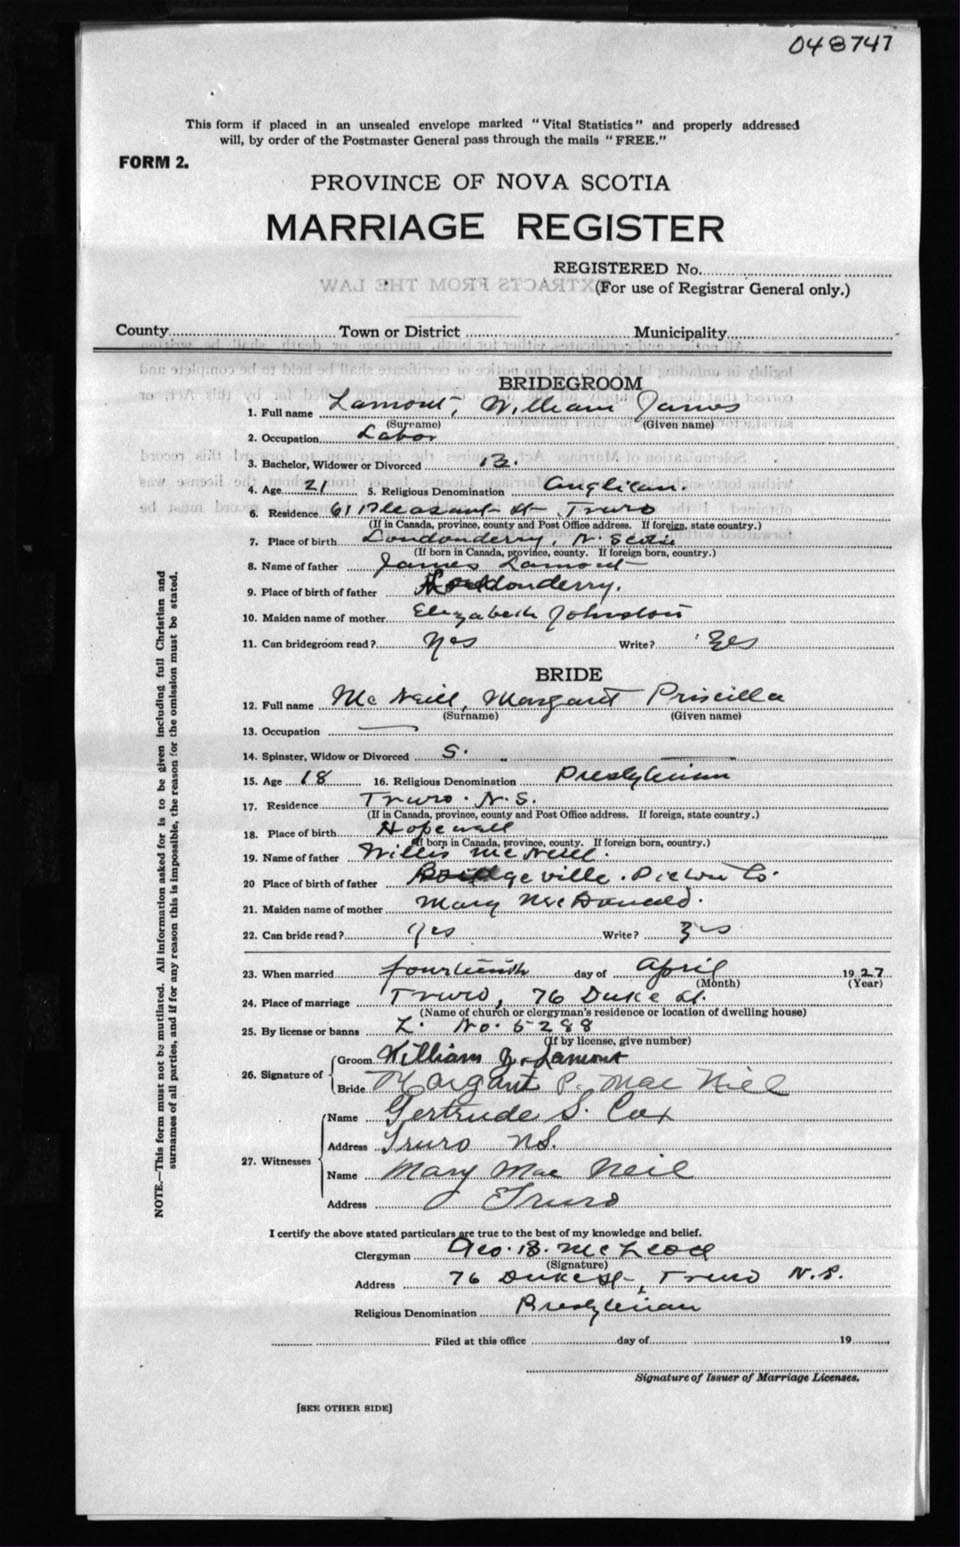 048747
This form if placed in an unsealed envelope marked "Vital Statistics" and properly addressed
will, by order of the Postmaster General pass through the mails "FREE."
FORM 2.
PROVINCE OF NOVA SCOTIA
MARRIAGE REGISTER
REGISTERED No.
EXTRACTS FROM THE LAW
(For use of Registrar General only.)
County Town or District Municipality
BRIDEGROOM
1. Full name Lamont, William James
(Surname) (Given name)
2. Occupation Labor
3. Bachelor, Widower or Divorced B.
4. Age 21 5. Religious Denomination Anglican.
6. Residence 61 Pleasant St Truro
(If in Canada, province, county and Post Office address. If foreign, state country.)
7. Place of birth Londonderry, N. Scotia
(If born in Canada, province, county. If foreign born, country.)
8. Name of father James Lamont
9. Place of birth of father Londonderry.
10. Maiden name of mother Elizabeth Johnston
11. Can bridegroom read? Yes Write? Yes
BRIDE
12. Full name McNeill, Margaret Priscilla
(Surname) (Given name)
13. Occupation —
14. Spinster, Widow or Divorced S.
15. Age 18 16. Religious Denomination Presbyterian
17. Residence Truro. N.S.
(If in Canada, province, county and Post Office address. If foreign, state country.)
18. Place of birth Hopewell
(If born in Canada, province, county. If foreign born, country.)
19. Name of father Willis McNeill.
20 Place of birth of father Bridgeville. Pictou Co.
21. Maiden name of mother Mary McDonald.
22. Can bride read? Yes Write? Yes
23. When married fourteenth day of April 1927
(Month) (Year)
24. Place of marriage Truro, 76 Duke St.
(Name of church or clergyman's residence or location of dwelling house)
25. By license or banns L. No. 5288
(If by license, give number)
26. Signature of Groom William J. Lamont
Bride Margaret P. Mac Niel
27. Witnesses Name Gertrude S. Cox
Address Truro N.S.
Name Mary Mac Neil
Address Truro
I certify the above stated particulars are true to the best of my knowledge and belief.
Clergyman Geo. B. McLeod
(Signature)
Address 76 Duke St, Truro N.S.
Religious Denomination Presbyterian
Filed at this office day of 19
Signature of Issuer of Marriage Licenses.
[SEE OTHER SIDE]
NOTE.—This form must not be mutilated. All information asked for is to be given including full Christian and
surnames of all parties, and if for any reason this is impossible, the reason for the omission must be stated.